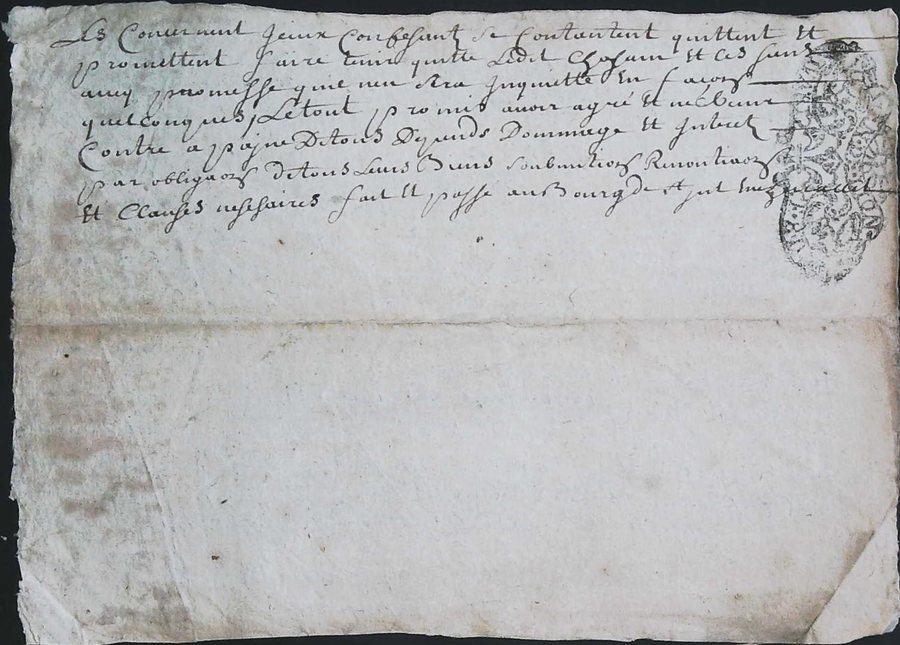 Les Concernent Jceux Confessantz se Contantent quittent Et
promettent faire tenir quitte Ledit Et Ces
avecq promesse quil nen sera Jnquietté En facons
quelconques, Letout promis avoir agré Et
Contre a pajne Detous Depends Dommage Et Jnteret
par obligaons detous Leurs Biens Soubmitions Renontiaons
Et Clauses nesesaires fait Et passé au Bourg de